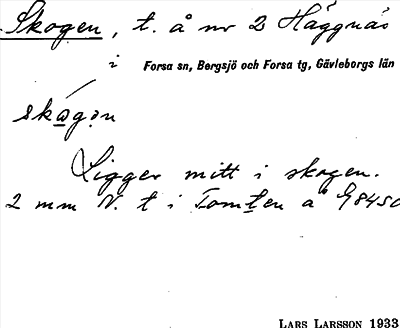 Skogen, t. å nr 2 Häggnäs
i Forsa sn, Bergsjö och Forsa tg, Gävleborgs län
Ligger mitt i skogen.
2 mm N. t i Tomten å
LARS LARSSON 1933